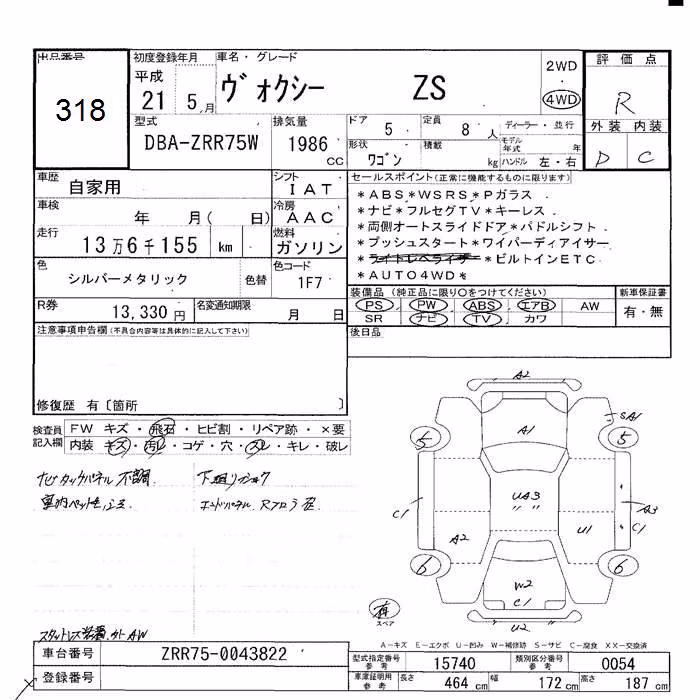 出品番号
318
初度登録年月
平成
21 5月
車名・グレード
ヴォクシー ZS
2WD
・
4WD
評価点
R
外装 内装
D C
型式
DBA-ZRR75W
排気量
1986
CC
ドア
5
定員
8 人
ディーラー・並行
形状
ワゴン
積載
kg
モデル年式 年
ハンドル 左・右
車歴
自家用
シフト
IAT
車検
年 月( 日)
冷房
AAC
走行
13万6千155 km
燃料
ガソリン
色
シルバーメタリック
色替
色コード
1F7
R券
13,330円
名変通知期限
月 日
セールスポイント(正常に機能するものに限ります)
*ABS*WSRS*Pガラス
*ナビ*フルセグTV*キーレス
*両側オートスライドドア*パドルシフト
*プッシュスタート*ワイパーディアイサー
*ライトレベライザー*ビルトインETC
*AUTO4WD*
装備品(純正品に限り○をつけてください)
PS PW ABS エアB AW
SR ナビ TV カワ
新車保証書
有・無
後日品
注意事項申告欄(不具合内容等は具体的に記入して下さい)
修復歴 有〔箇所 〕
検査員記入欄
FW キズ・飛石・ヒビ割・リペア跡・×要
内装 キズ・汚レ・コゲ・穴・スレ・キレ・破レ
ナビタッチパネル不調
下廻りサビ
エンドパネル Rフロア
スタットレス装着
A2
A1
SA1
5
5
UA3
〃 〃
C1
A3
C1
A2
U1
6
6
W2
C1
U2
有
スペア
A-キズ E-エクボ U-凹み W-補修跡 S-サビ C-腐食 XX-交換済
車台番号
ZRR75-0043822
登録番号
型式指定番号参考
15740
類別区分番号参考
0054
車庫証明用参考
長さ 464cm
幅 172cm
高さ 187cm